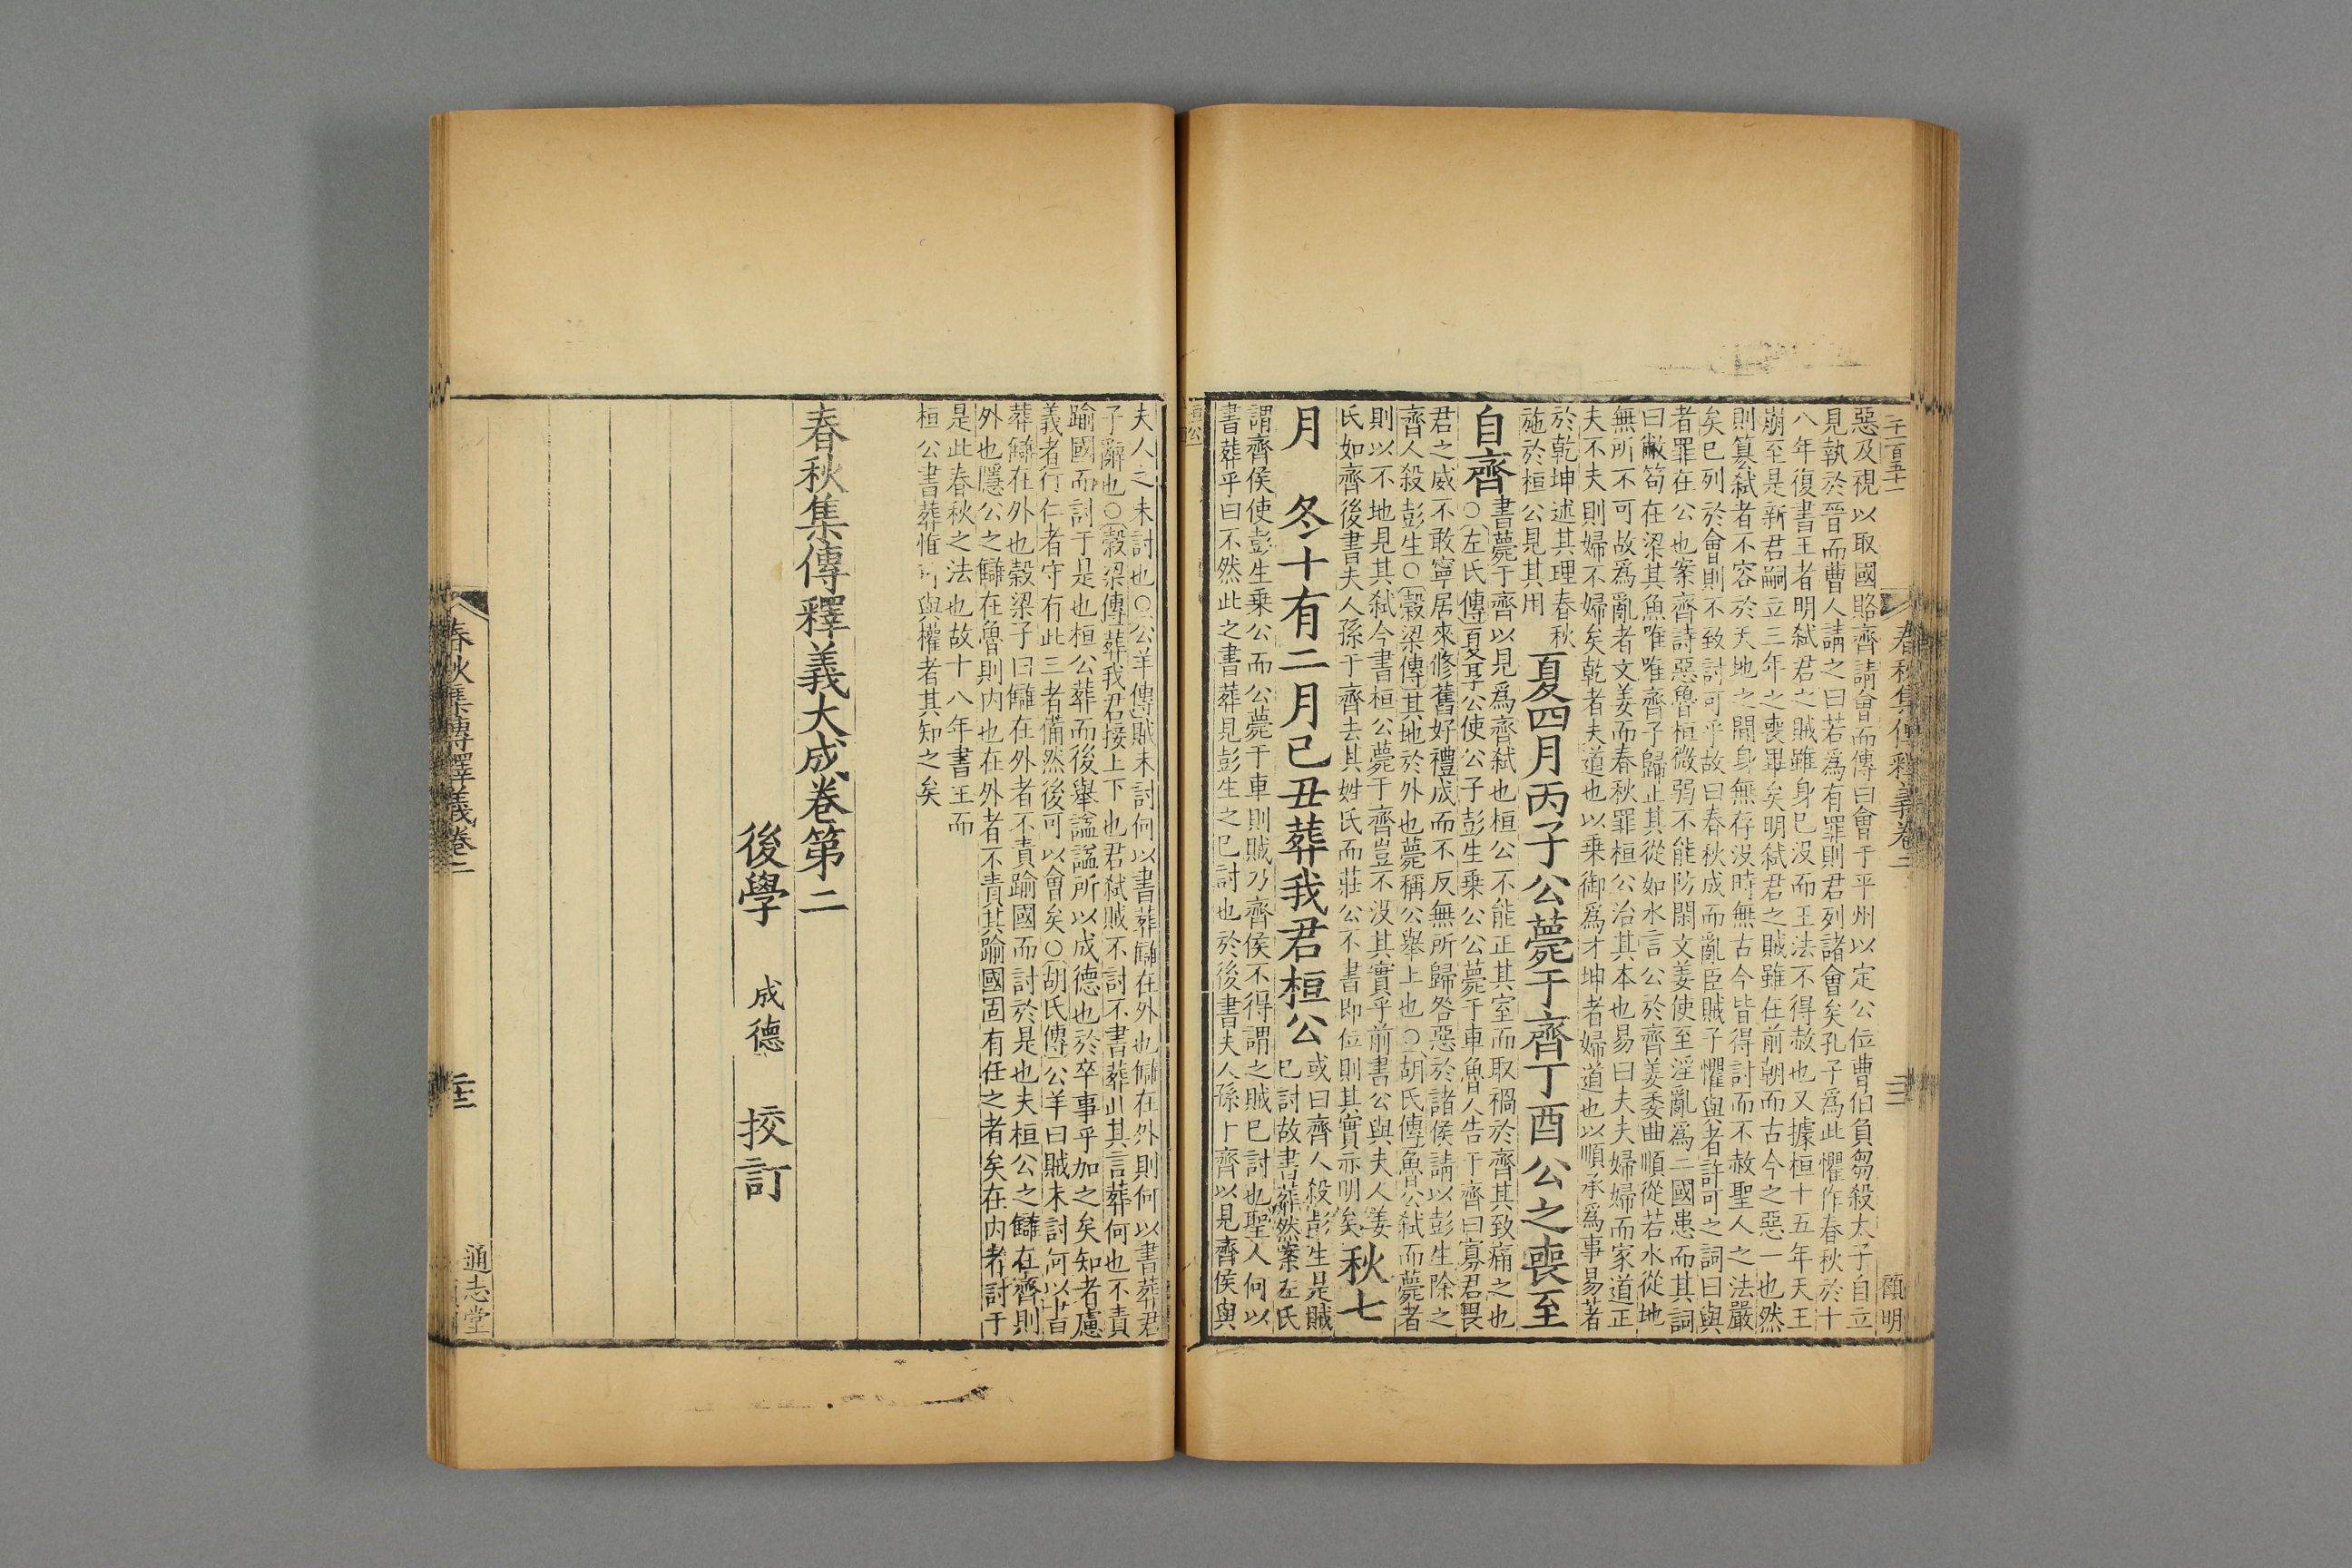 二千一百五十一
春秋集傳釋義卷二
三三
顧明
惡及視以取國賂齊請會而傳曰會于平州以定公位曹伯負芻殺太子自立
見執於晉而曹人請之曰若爲有罪則君列諸會矣孔子爲此懼作春秋於十
八年復書王者明弑君之賊雖身巳没而王法不得赦也又據桓十五年天王
崩至是新君嗣立三年之喪畢矣明弑君之賊雖在前朝而古今之惡一也然
則篡弑者不容於天地之閒身無存没時無古今皆得討而不赦聖人之法嚴
矣巳列於會則不致討可乎故曰春秋成而亂臣賊子懼與者許可之詞曰與
者罪在公也案齊詩惡魯桓微弱不能防閑文姜使至淫亂爲二國患而其詞
曰敝笱在梁其魚唯唯齊子歸止其從如水言公於齊姜委曲順從若水從地
無所不可故爲亂者文姜而春秋罪桓公治其本也易曰夫夫婦婦而家道正
夫不夫則婦不婦矣乾者夫道也以乗御爲才坤者婦道也以順承爲事易著
於乾坤述其理春秋
施於桓公見其用
夏四月丙子公薨于齊丁酉公之喪至
自齊
書薨于齊以見爲齊弑也桓公不能正其室而取禍於齊其致痛之也
○左氏傳夏享公使公子彭生乗公公薨于車魯人告于齊曰寡君畏
君之威不敢寧居來修舊好禮成而不反無所歸咎惡於諸侯請以彭生除之
齊人殺彭生○穀梁傳其地於外也薨稱公舉上也○胡氏傳魯公弑而薨者
則以不地見其弑今書桓公薨于齊豈不没其實乎前書公與夫人姜
氏如齊後書夫人孫于齊去其姓氏而莊公不書即位則其實亦明矣
秋七
月　冬十有二月己丑葬我君桓公
或曰齊人殺彭生是賊
巳討故書葬然案左氏
謂齊侯使彭生乗公而公薨于車則賊乃齊侯不得謂之賊巳討也聖人何以
書葬乎曰不然此之書葬見彭生之巳討也於後書夫人孫于齊以見齊侯與
桓公
夫人之未討也○公羊傳賊未討何以書葬讎在外也讎在外則何以書葬君
子辭也○穀梁傳葬我君接上下也君弑賊不討不書葬此其言葬何也不責
踰國而討于是也桓公葬而後舉謚謚所以成德也於卒事乎加之矣知者慮
義者行仁者守有此三者備然後可以會矣○胡氏傳公羊曰賊未討何以書
葬讎在外也穀梁子曰讎在外者不責踰國而討於是也夫桓公之讎在齊則
外也隱公之讎在魯則内也在外者不責其踰國固有任之者矣在内者討于
是此春秋之法也故十八年書王而
桓公書葬惟可與權者其知之矣
春秋集傳釋義大成卷第二
後學　成德　挍訂
春秋集傳釋義卷二
三三
通志堂